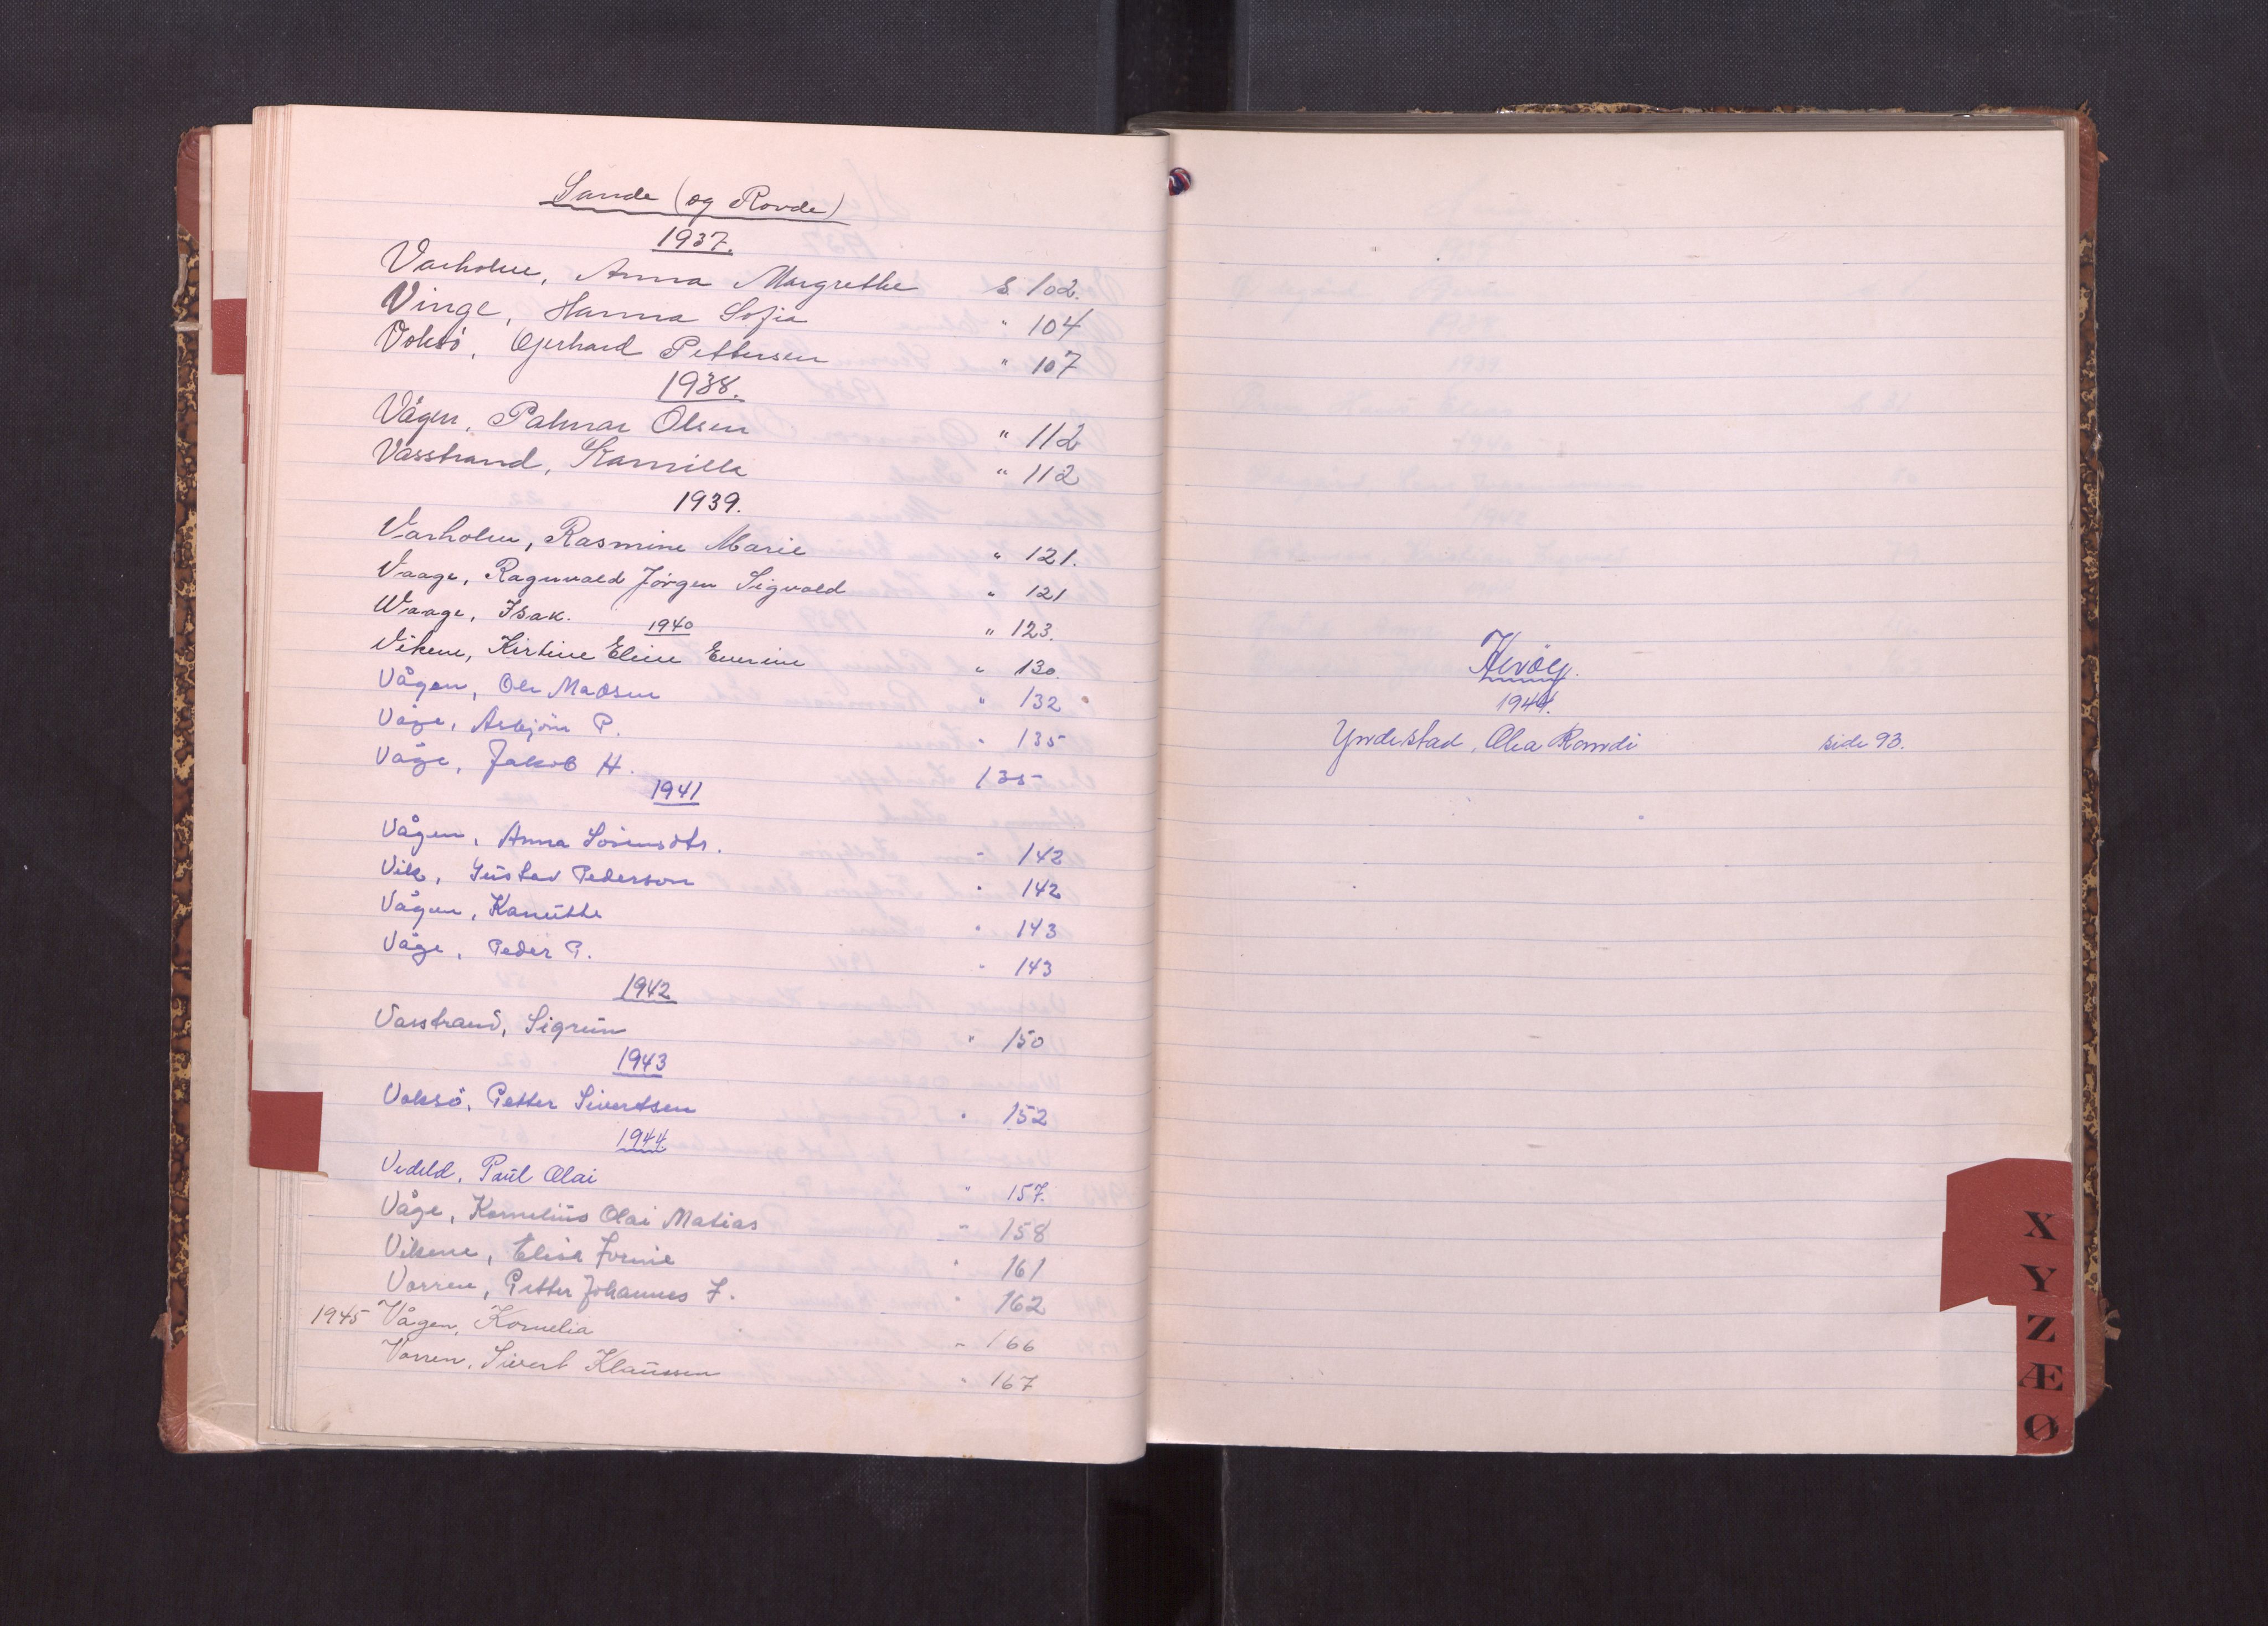 Sande (og Rovde)
1937.
Varholm, Anna Margrethe s. 102.
Vinge, Hanna Sofia " 104
Voksö, Gerhard Pettersen " 107
1938.
Vågen, Palmar Olsen " 112
Vasstrand, Kamilla " 112
1939.
Varholm, Rasmine Marie " 121.
Vaage, Ragnvald Jörgen Sigvald " 121
Waage, Isak. " 123.
1940
Vikene, Kirtine Eline Everine " 130.
Vågen, Ole Madsen " 132
Våge, Asbjörn P. " 135
Våge, Jakob H. 135
1941
Vågen, Anna Sörensdtr. " 142
Vik, Gustav Pederson " 142
Vågen, Kanutte " 143
Våge, Peder P. " 143
1942
Vasstrand, Sigrun " 150
1943
Voksö, Petter Sivertsen " 152
1944
Vedeld, Paul Olai " 157.
Våge, Kornelius Olai Matias " 158
Vikene, Elisa Jornie " 161
Vorren, Petter Johannes J. " 162
1945 Vågen, Kornelia " 166
Vorren, Sivert Klaussen " 167
Herøy.
1944.
Yndestad, Olea Randi side 93.
X
Y
Z
Æ
Ø